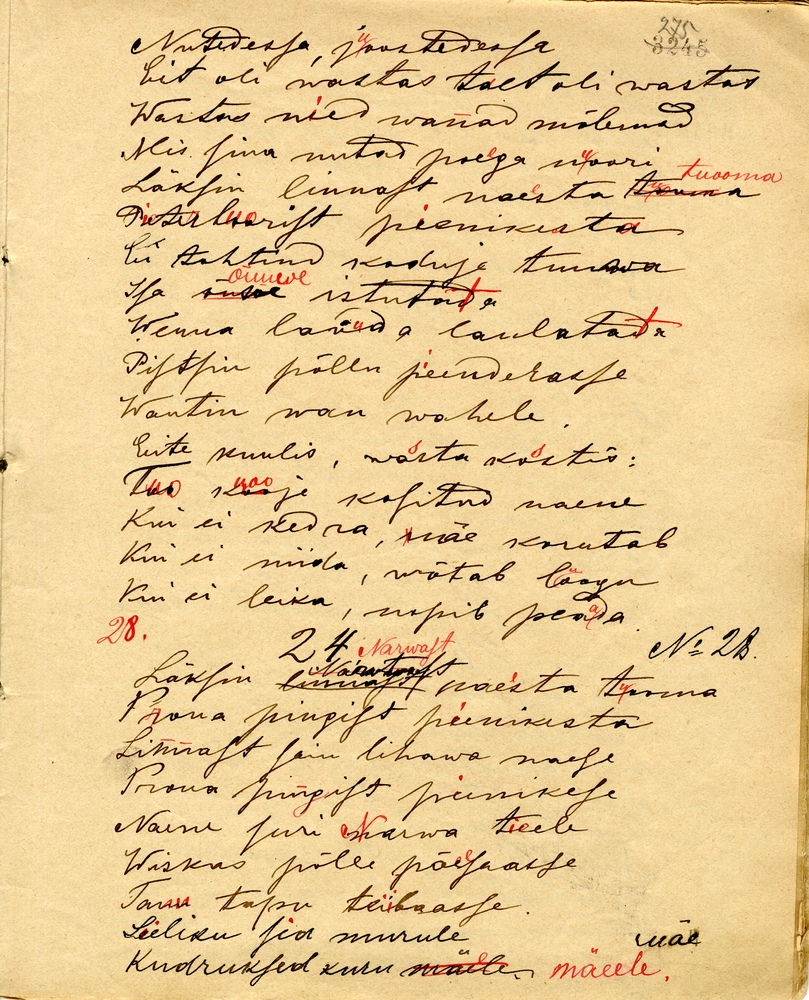 275
3245
Nutedessa, joostedessa
Eit oli wastas taet oli wastas
Wastas nied wanad mõlemad
Mis sina nutad poega nuori
Läksin linnast naesta tuooma
Peterburist pienikesta
Ei tahtind koduje tuuwa
Isa õuuele istutada
Wenna lauda laulatada
Pistsin põllu pienderasse
Wautin wau wahele.
Eite kuulis, wasta kostis:
Tuo kooje kositud naene
Kui ei kedra, mäe korutab
Kui ei niida, wõtab loogu
Kui ei leika, nopib peada
28.
24
Narwast
No 2B.
Läksin naesta tuoma
Proua pingist pienikesta
Linnast sain lihawa naese
Proua pingist pienikese
Naene suri Narwa tiele
Wiskas põlle päesaasse
Tanu tapu teibaasse.
Seeliku sia murule
mäe
Kudruksed kuru mäeele.